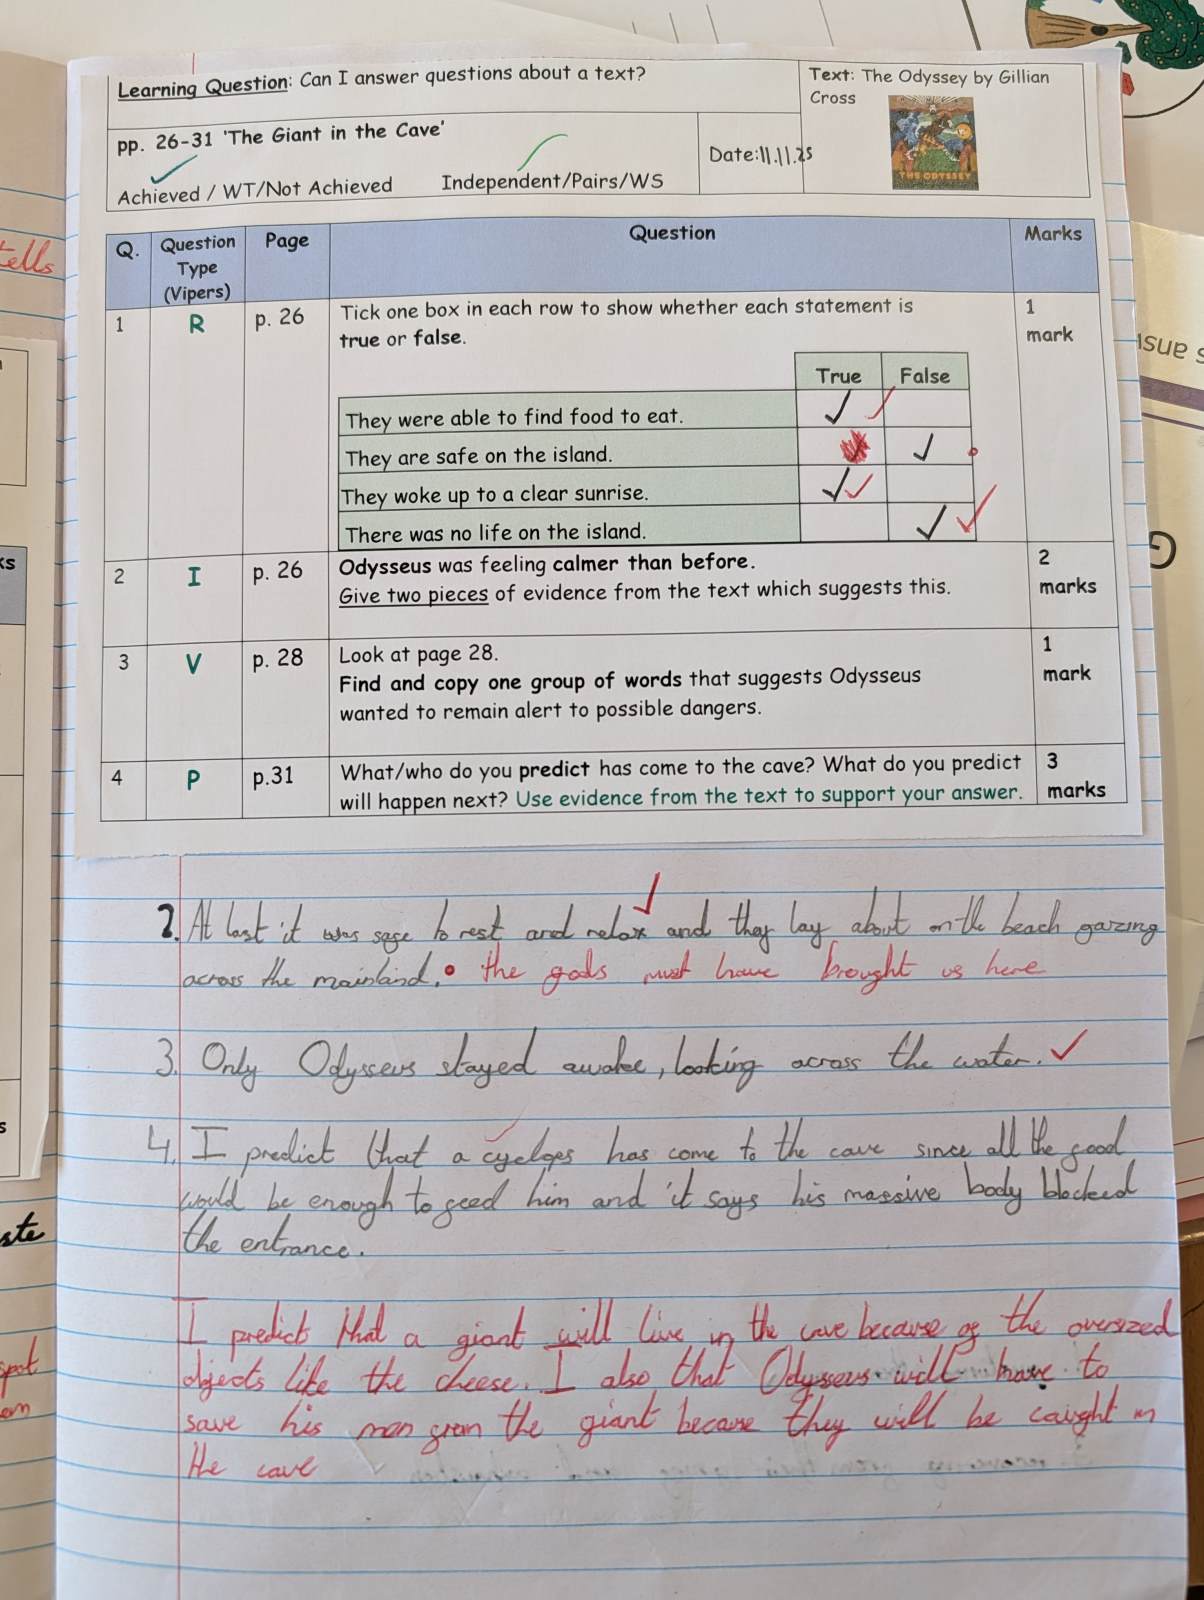 Learning Question: Can I answer questions about a text?
Text: The Odyssey by Gillian
Cross
pp. 26-31 'The Giant in the Cave'
Date:11.11.25
THE ODYSSEY
Achieved / WT/Not Achieved
Independent/Pairs/WS
Q.
Question
Type
(Vipers)
Page
Question
Marks
1
R
p. 26
Tick one box in each row to show whether each statement is
true or false.
1
mark
True
False
They were able to find food to eat.
They are safe on the island.
They woke up to a clear sunrise.
There was no life on the island.
2
I
p. 26
Odysseus was feeling calmer than before.
Give two pieces of evidence from the text which suggests this.
2
marks
3
V
p. 28
Look at page 28.
Find and copy one group of words that suggests Odysseus
wanted to remain alert to possible dangers.
1
mark
4
P
p.31
What/who do you predict has come to the cave? What do you predict
will happen next? Use evidence from the text to support your answer.
3
marks
2. At last it was sage to rest and relax and they lay about on the beach gazing
across the mainland. the gods must have brought us here
3. Only Odysseus stayed awake, looking across the water.
4. I predict that a cyclops has come to the cave since all the good
would be enough to geed him and it says his massive body blocked
the entrance.
I predict that a giant will live in the cave because og the oversized
objects like the cheese. I also that Odysseus will have to
save his men grom the giant because they will be caught in
the cave
tells
ks
s
ste
spot
em